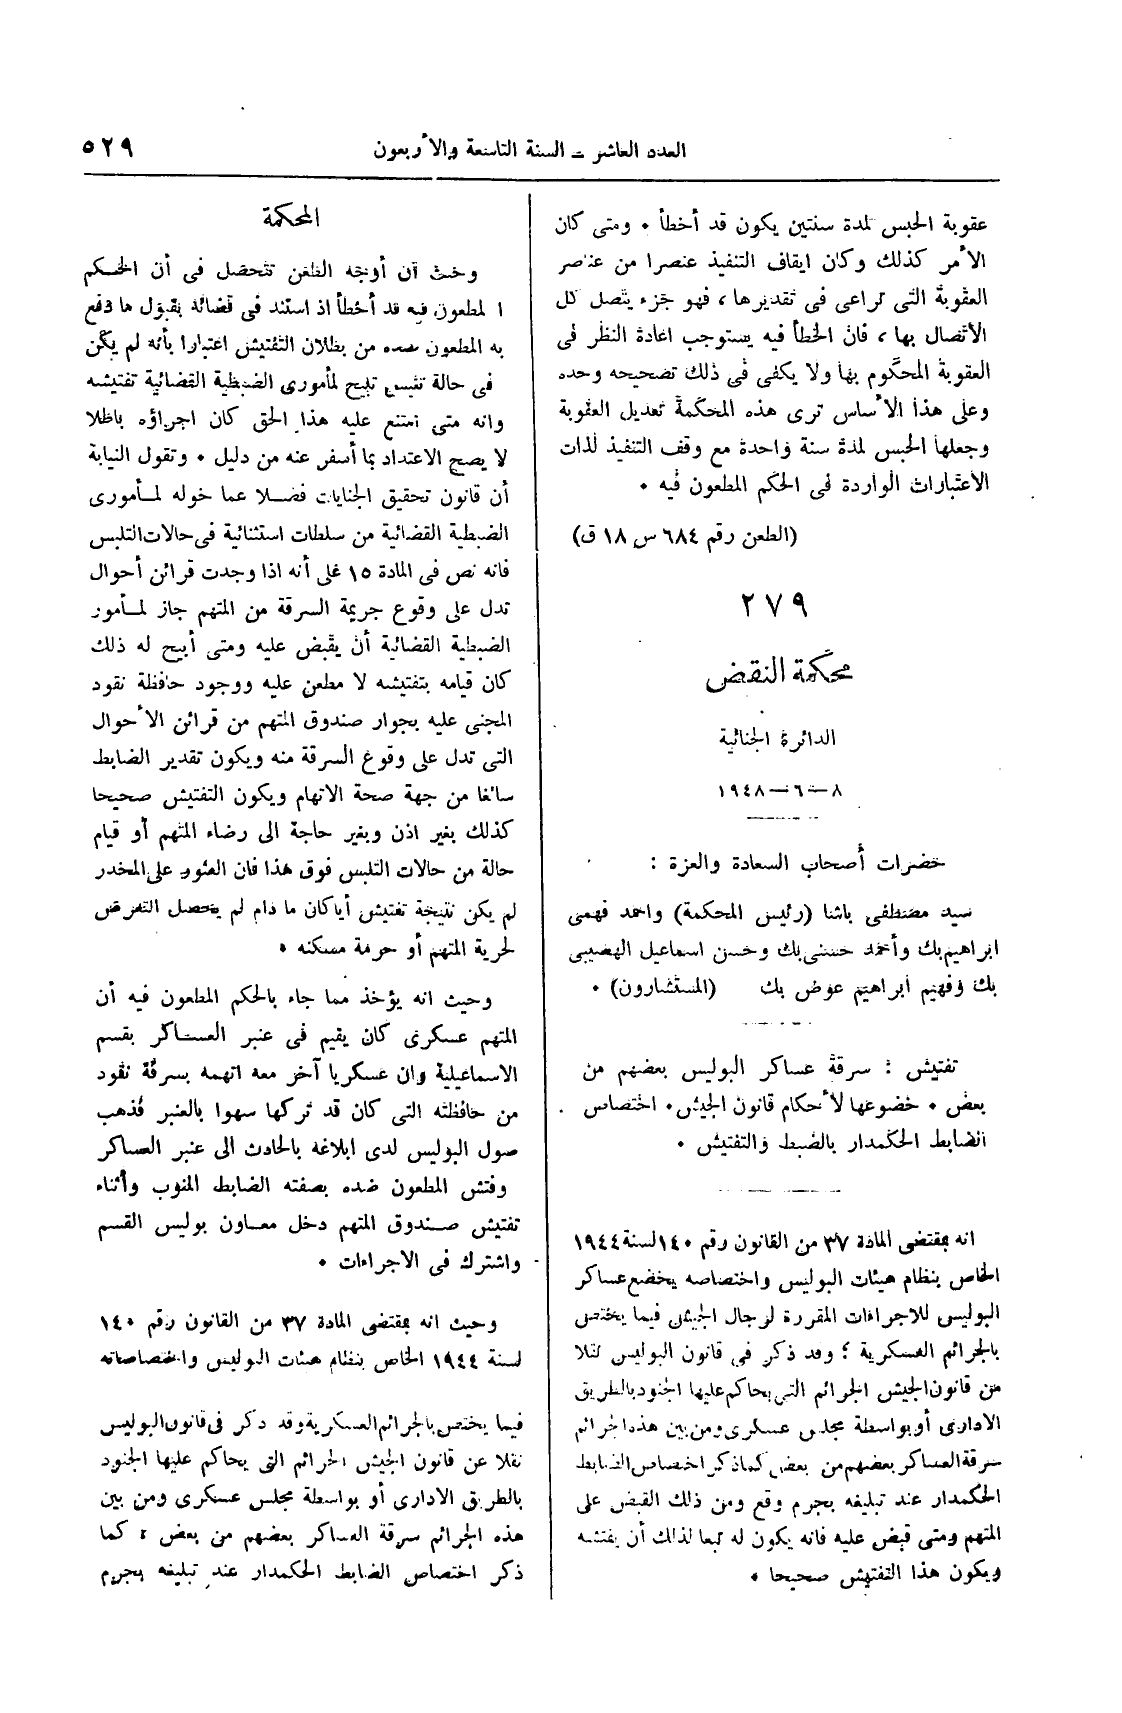 العدد العاشر - السنة التاسعة والأربعون
٥٢٩
عقوبة الحبس لمدة سنتين يكون قد أخطأ ٠ ومتى كان
الأمر كذلك وكان ايقاف التنفيذ عنصرا من عناصر
العقوبة التى تراعى فى تقديرها ، فهو جزء يتصل كل
الأتصال بها ، فان الخطأ فيه يستوجب اعادة النظر فى
العقوبة المحكوم بها ولا يكفى فى ذلك تصحيحه وحده
وعلى هذا الأساس ترى هذه المحكمة تعديل العقوبة
وجعلها الحبس لمدة سنة واحدة مع وقف التنفيذ لذات
الأعتبارات الواردة فى الحكم المطعون فيه ٠
(الطعن رقم ٦٨٤ س ١٨ ق)
٢٧٩
محكمة النقض
الدائرة الجنائية
٨-٦-١٩٤٨
حضرات أصحاب السعادة والعزة :
سيد مصطفى باشا (رئيس المحكمة) واحمد فهمى
ابراهيم بك وأحمد حسنى بك وحسن اسماعيل الهضيبى
بك وفهيم ابراهيم عوض بك (المستشارون) ٠
تفتيش : سرقة عساكر البوليس بعضهم من
بعض ٠ خضوعها لأحكام قانون الجيش ٠ اختصاص
الضابط الحكمدار بالضبط والتفتيش ٠
انه بمقتضى المادة ٣٧ من القانون رقم ١٤٠ لسنة ١٩٤٤
الخاص بنظام هيئات البوليس واختصاصه يخضع عساكر
البوليس للاجراءات المقررة لرجال الجيش فيما يختص
بالجرائم العسكرية ؛ وقد ذكر فى قانون البوليس نقلا
من قانون الجيش الجرائم التى يحاكم عليها الجنود بالطريق
الادارى أو بواسطة مجلس عسكرى ومن بين هذه الجرائم
سرقة العساكر بعضهم من بعض كما ذكر اختصاص الضابط
الحكمدار عند تبليغه بجرم وقع ومن ذلك القبض على
المتهم ومتى قبض عليه فانه يكون له تبعا لذلك أن يفتشه
ويكون هذا التفتيش صحيحا ٠
المحكمة
وحيث أن أوجه الطعن تتحصل فى أن الحكم
المطعون فيه قد أخطأ اذ استند فى قضائه بقبول ما دفع
به المطعون ضده من بطلان التفتيش اعتبارا بأنه لم يكن
فى حالة تلبس تبيح لمأمورى الضبطية القضائية تفتيشه
وانه متى امتنع عليه هذا الحق كان اجراؤه باطلا
لا يصح الاعتداد بما أسفر عنه من دليل ٠ وتقول النيابة
أن قانون تحقيق الجنايات فضلا عما خوله لمأمورى
الضبطية القضائية من سلطات استثنائية فى حالات التلبس
فانه نص فى المادة ١٥ على أنه اذا وجدت قرائن أحوال
تدل على وقوع جريمة السرقة من المتهم جاز لمأمور
الضبطية القضائية أن يقبض عليه ومتى أبيح له ذلك
كان قيامه بتفتيشه لا مطعن عليه ووجود حافظة نقود
المجنى عليه بجوار صندوق المتهم من قرائن الأحوال
التى تدل على وقوع السرقة منه ويكون تقدير الضابط
سائغا من جهة صحة الاتهام ويكون التفتيش صحيحا
كذلك بغير اذن وبغير حاجة الى رضاء المتهم أو قيام
حالة من حالات التلبس فوق هذا فان العثور على المخدر
لم يكن نتيجة تفتيش أيا كان ما دام لم يحصل التعرض
لحرية المتهم أو حرمة مسكنه ٠
وحيث انه يؤخذ مما جاء بالحكم المطعون فيه أن
المتهم عسكرى كان يقيم فى عنبر العساكر بقسم
الاسماعيلية وان عسكريا آخر معه اتهمه بسرقة نقود
من حافظته التى كان قد تركها سهوا بالعنبر فذهب
صول البوليس لدى ابلاغه بالحادث الى عنبر العساكر
وفتش المطعون ضده بصفته الضابط المنوب وأثناء
تفتيش صندوق المتهم دخل معاون بوليس القسم
واشترك فى الاجراءات ٠
وحيث انه بمقتضى المادة ٣٧ من القانون رقم ١٤٠
لسنة ١٩٤٤ الخاص بنظام هيئات البوليس واختصاصاته
فيما يختص بالجرائم العسكرية وقد ذكر فى قانون البوليس
نقلا عن قانون الجيش الجرائم التى يحاكم عليها الجنود
بالطريق الادارى أو بواسطة مجلس عسكرى ومن بين
هذه الجرائم سرقة العساكر بعضهم من بعض ، كما
ذكر اختصاص الضابط الحكمدار عند تبليغه بجرم